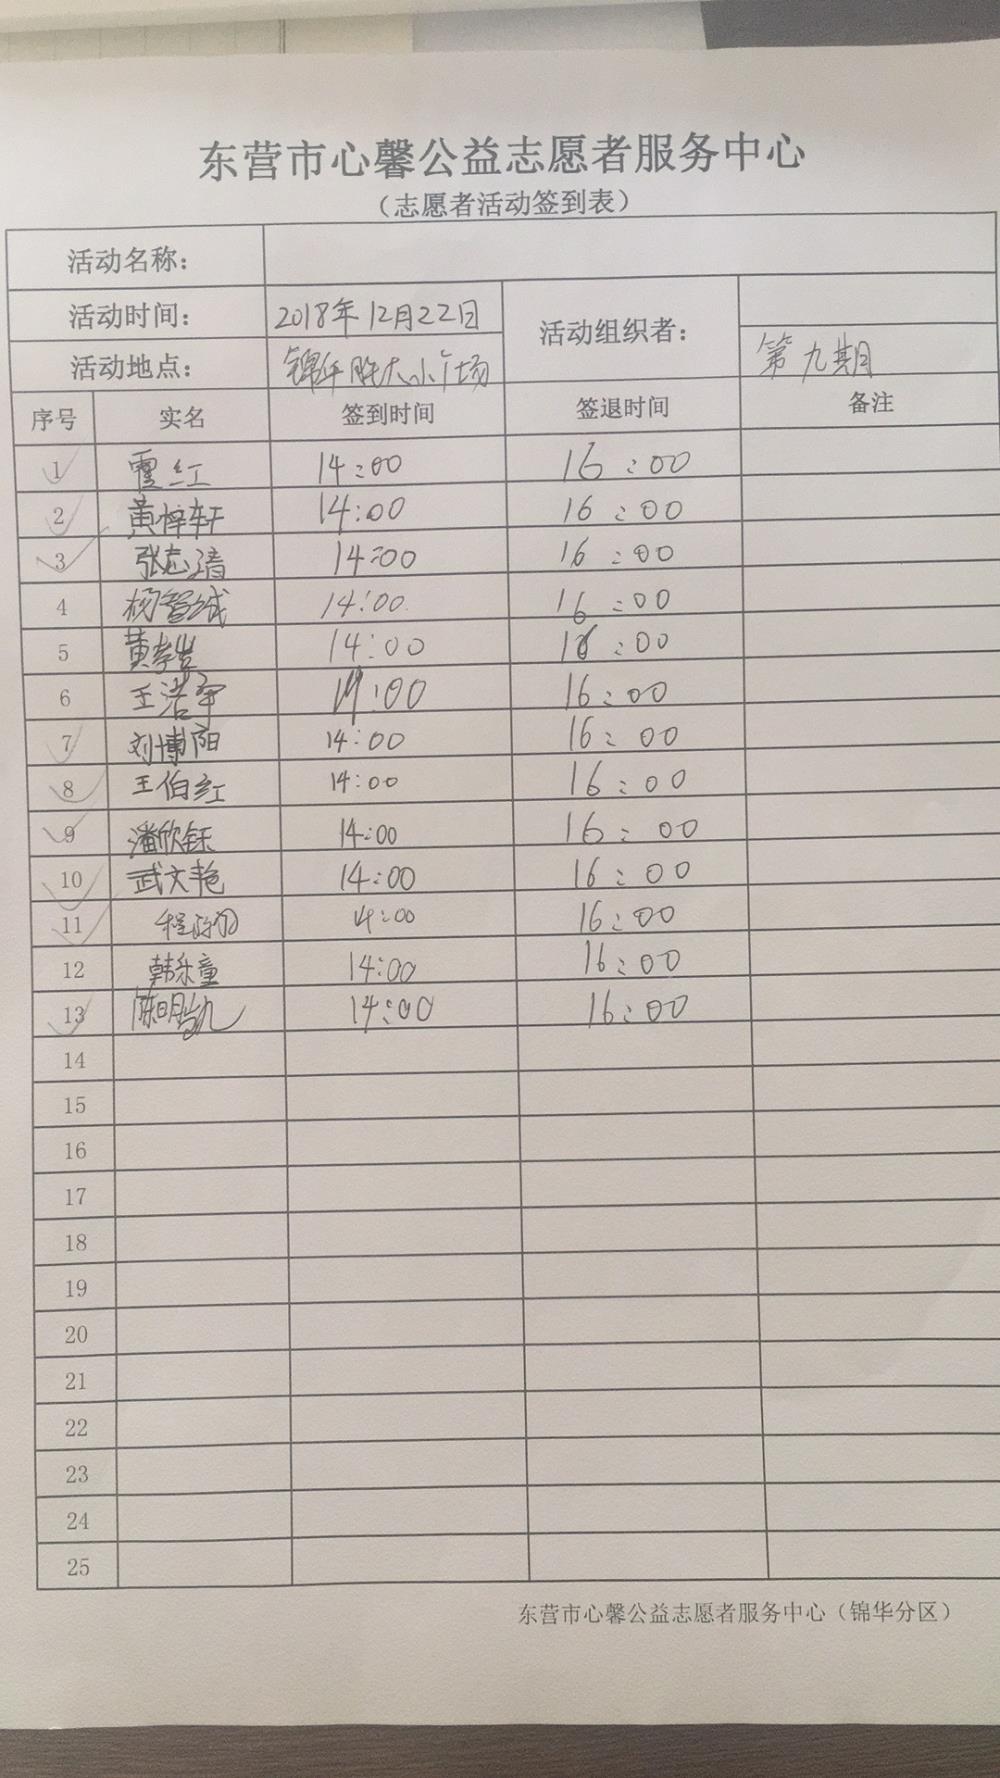 东营市心馨公益志愿者服务中心
（志愿者活动签到表）
活动名称：
活动时间： 2018年12月22日 活动组织者：
活动地点： 大小广场 第九期
序号 实名 签到时间 签退时间 备注
1 霍红 14:00 16:00
2 黄梓轩 14:00 16:00
3 张志清 14:00 16:00
4 杨智诚 14:00 16:00
5 黄 14:00 16:00
6 王浩宇 14:00 16:00
7 刘博阳 14:00 16:00
8 王伯红 14:00 16:00
9 潘欣钰 14:00 16:00
10 武文艳 14:00 16:00
11 程 14:00 16:00
12 韩乐童 14:00 16:00
13 陈明凯 14:00 16:00
14
15
16
17
18
19
20
21
22
23
24
25
东营市心馨公益志愿者服务中心（锦华分区）